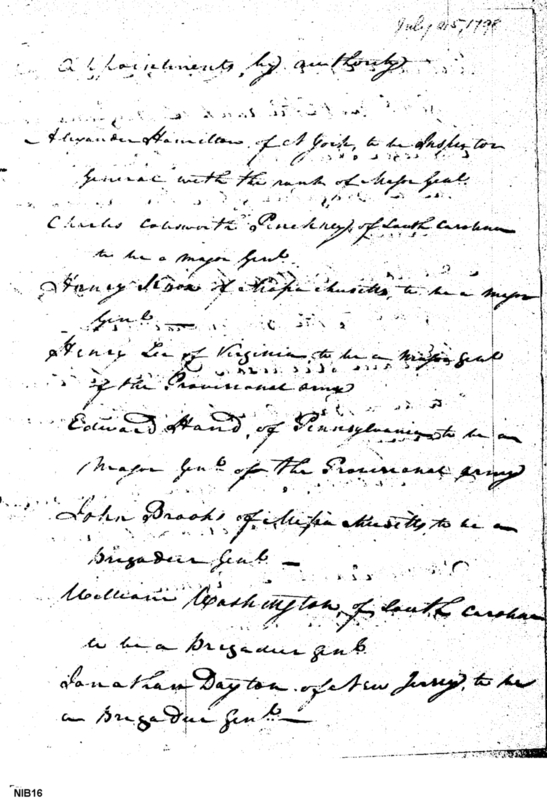 July 25, 1798
Appointments by authority
Alexander Hamilton of N York, to be Inspector
General with the rank of Major Genl.
Charles Cotesworth Pinckney, of South Carolina
to be a major Genl.
Henry Knox of Massachusetts, to be a major
Genl. —
Henry Lee of Virginia to be a major Genl
of the Provisional army
Edward Hand, of Pennsylvania to be a
Major Genl. of the Provisional army
John Brooks of Massachusetts to be a
Brigadier Genl. —
William Washington, of South Carolina
to be a Brigadier Genl.
Jonathan Dayton of New Jersey, to be
a Brigadier Genl. —
NIB16